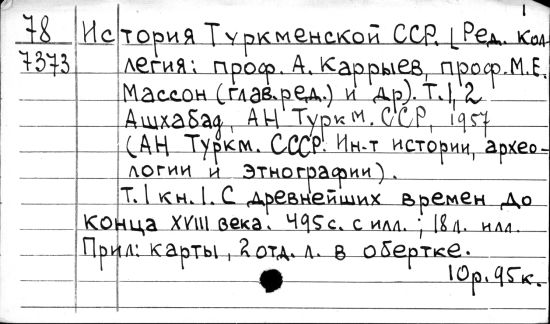 1
78 История Туркменской ССР. [Ред. кол-
7373 легия: проф. А. Каррыев, проф. М.Е.
Массон (глав. ред.) и др). Т. 1, 2
Ашхабад, АН Туркм. ССР, 1957
(АН Туркм. СССР. Ин-т истории, архео-
логии и этнографии).
Т. 1 кн. 1. С древнейших времен до
конца XVIII века. 495 с. с илл.; 18 л. илл.
Прил: карты, 2 отд. л. в обертке.
10 р. 95 к.